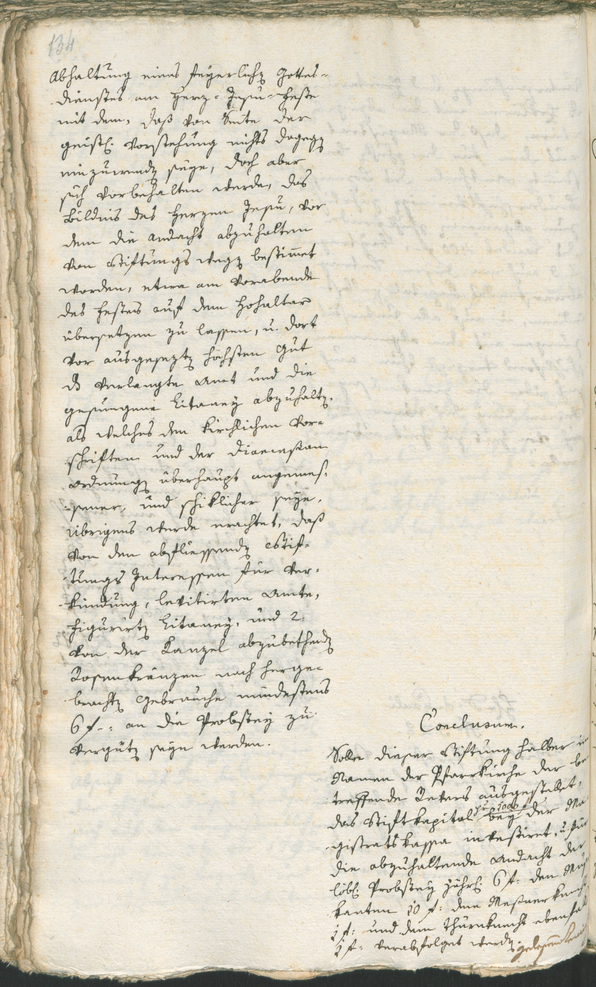 134
Abhaltung eines feyerlichen Gottes-
dienstes am Herz-Jesu-Feste
mit dem, daß von Seite der
geistl. Vorstehung nichts dagegen
einzuwenden seye, doch aber
sich vorbehalten werde, das
Bildnis des Herzen Jesu, vor
dem die Andacht abzuhalten
von Stiftungs wegen bestimmet
worden, etwa am Vorabende
des Festes auf dem Hohaltar
übersetzen zu lassen, u. dort
vor ausgesezten höchsten Gut
das verlangte Amt und die
gesungene Litaney abzuhalten.
als welches den kirchlichen Vor-
schriften und der Dioecesan
Ordnung überhaupt angemes-
sener, und schiklicher seye.
Übrigens werde erachtet, daß
von den abfliessenden Stif-
tungs Interessen für Ver-
kündung, levitirten Amte,
figurirten Litaney, und 2
von der Kanzel abzubethenden
Rosenkränzen nach herge-
brachten Gebrauche mindestens
6 f: an die Probstey zu
vergüten seyn werden.
Conclusum.
Solle dieser Stiftung halber im
Namen der Pfarrkirche der be-
treffende Revers ausgestellet,
das Stiftkapital bey der Ma-
gistratskassa investiret, u. für
die abzuhaltende Andacht der
löbl. Probstey jährl. 6 f: den Mus-
kanten 10 f: dem Meßnerknecht
1 f: und dem Thurnknecht ebenfals
1 f: verabfolget werden.